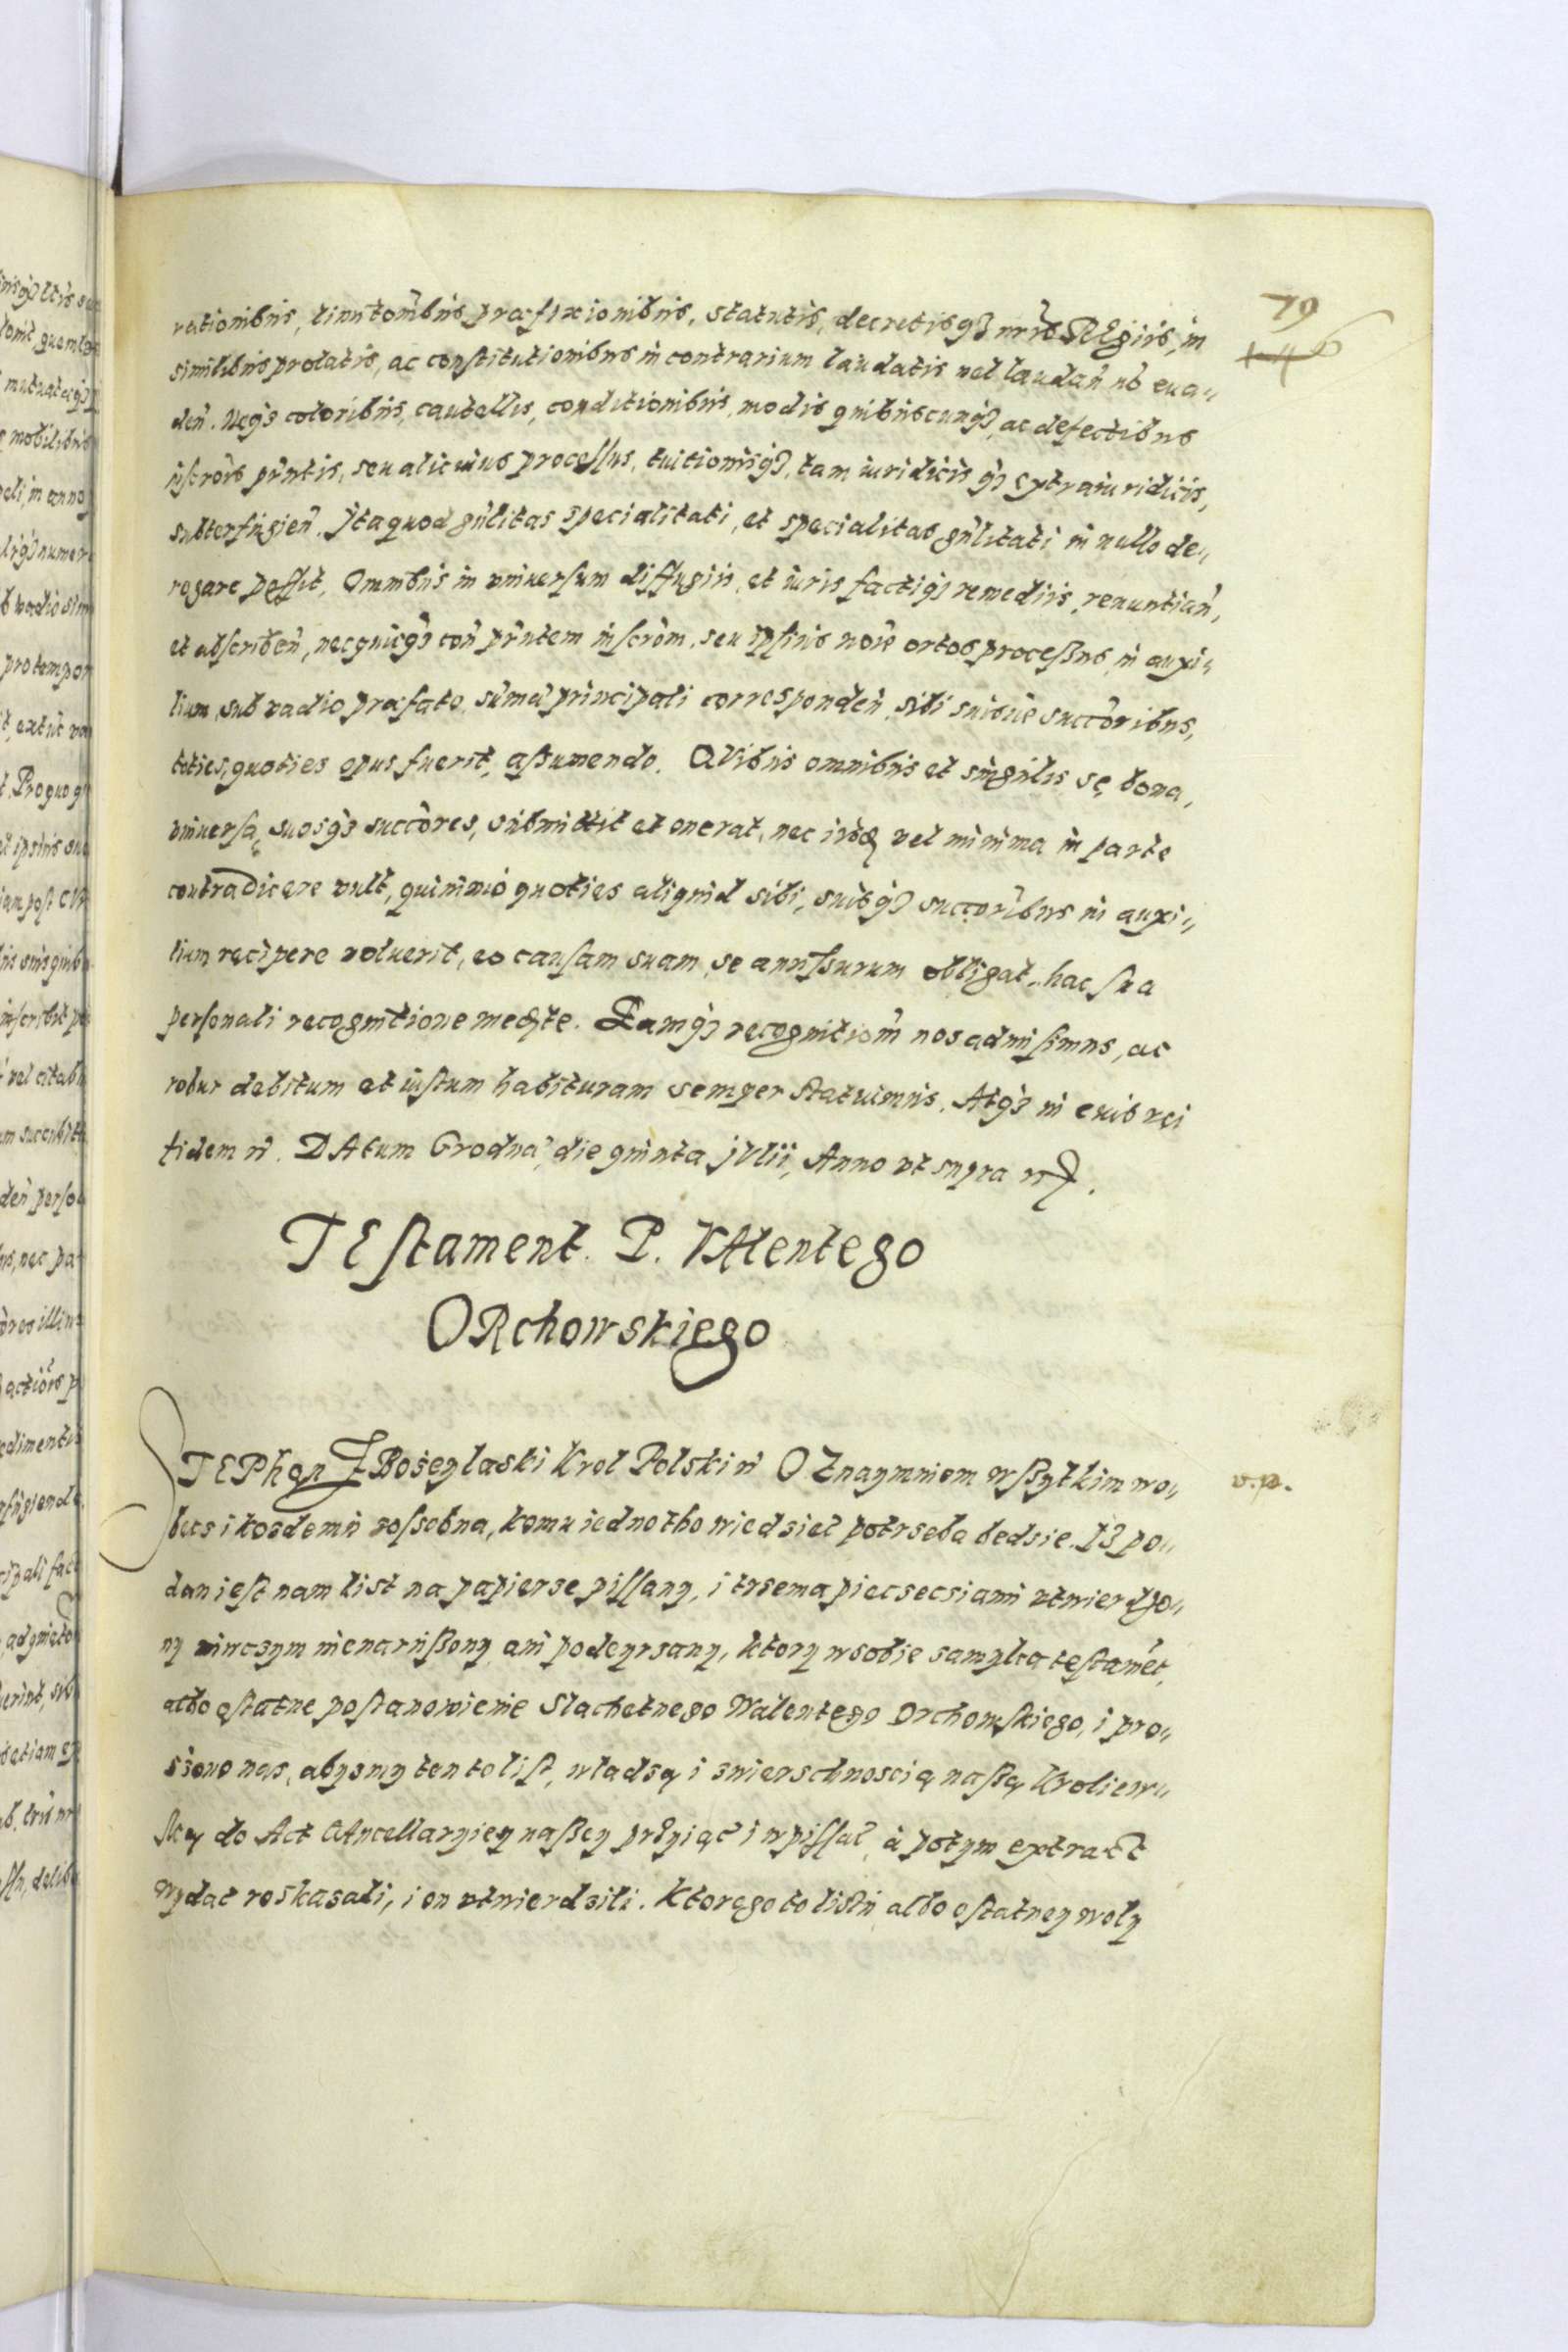 79
146
rationibus, limitombus præfixionibus, statutis, decretisq3 nris REgiis, in
similibus prolatis, ac constitutionibus in contrarium laudatis vel laudan no eua„
den. Neq3 coloribus, cautellis, conditionibus, modis quibuscunq3, ac defectibus
pntis, seu alicuius processus, tuitionisq3, tam iuridicis q3 extraiuridicis,
subterfugien. Jtaquod gnlitas specialitati, et specialitas gnlitati in nullo de„
rogare possit, Omnibus in vniuersum diffugiis, et iuris factiq3 remediis, renuntian,
et abscriben, necquicq3 con pntem inscrom, seu ipsius noie ortos processus, in auxi„
lium, sub vadio præfato, suma principali corresponden, sibi suisue succoribus,
toties, quoties opus fuerit, assumendo. QVibus omnibus et singulis se, bona,
vniuersa, suosq3 succores, submittit et onerat, nec vel minima in parte
contradicere vult, quinimò quoties aliquid sibi, suisq3 succoribus in auxi„
lium recipere voluerit, eo causam suam se annissurum obligat, hac sua
personali recognitione medte. Eamq3 recognitiom nos admisimus, ac
robur debitum et iustum habituram semper statuimus. Atq3 in euis rei
fidem n. DAtum Grodna, die quinta jVlii, Anno vt supra
TEstament. P. VAlentego
ORchowskiego
STEPhan Z Bożey laski Krol Polski n OZnaymuiem wßytkim wo„
v.p.
becs i kozdemu zossobna, komu iedno tho wiedsieć potrseba bedsie. Iż po„
dan iest nam list na papierse pissany, i trsema piecsecsiami vtwierdzo„
ny niwczym nienarußony ani podeyrsany, ktory wsobie samyka testamet,
albo ostatne postanowienie Slachetnego Walentego Orchowskiego, i pro„
siono nas, abysmy ten to list, wladsą i zwierschnoscią naßą Kroliew„
ską do Act CAncellaryiey naßey prziyiąć i wpissać, à potym extract
wydat roskasali, i on vtwierdzili. Ktorego to listu albo ostatney woly